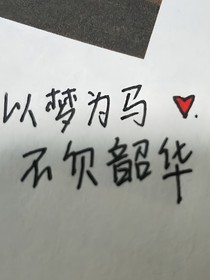 以梦为马 ♥.
不欠韶华